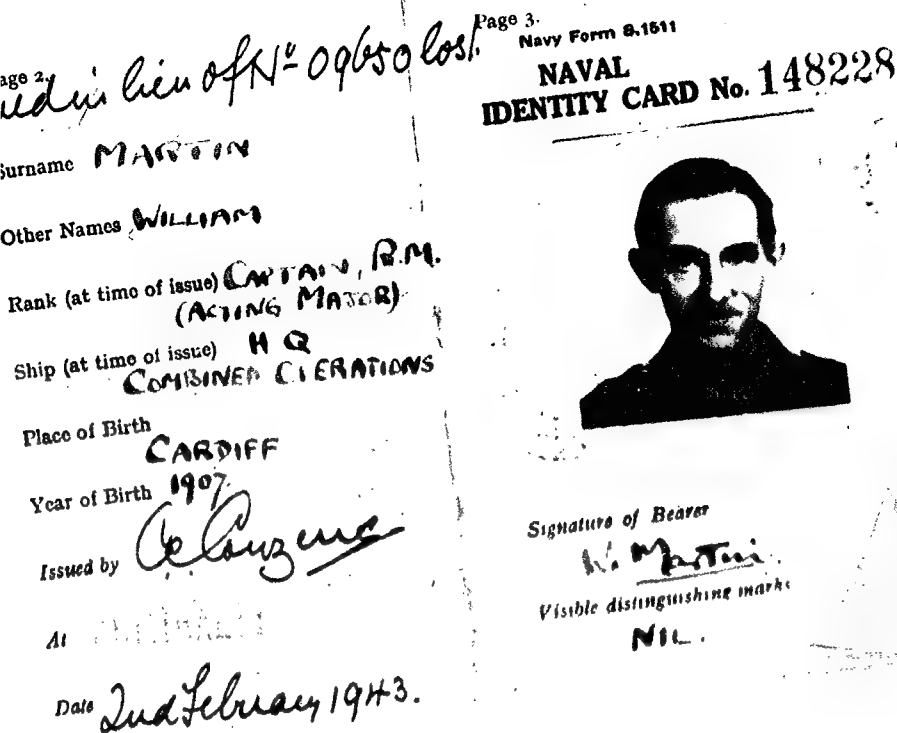 Page 2.
in lieu of Nº 09650 lost.
Surname MARTIN
Other Names WILLIAM
Rank (at time of issue) CAPTAIN, R.M.
(ACTING MAJOR)
Ship (at time of issue) H Q
COMBINED OPERATIONS
Place of Birth
CARDIFF
Year of Birth 1907
Issued by
At
Date 2nd February 1943.
Page 3.
Navy Form S.1511
NAVAL
IDENTITY CARD No. 148228
Signature of Bearer
W. Martin.
Visible distinguishing marks
NIL.